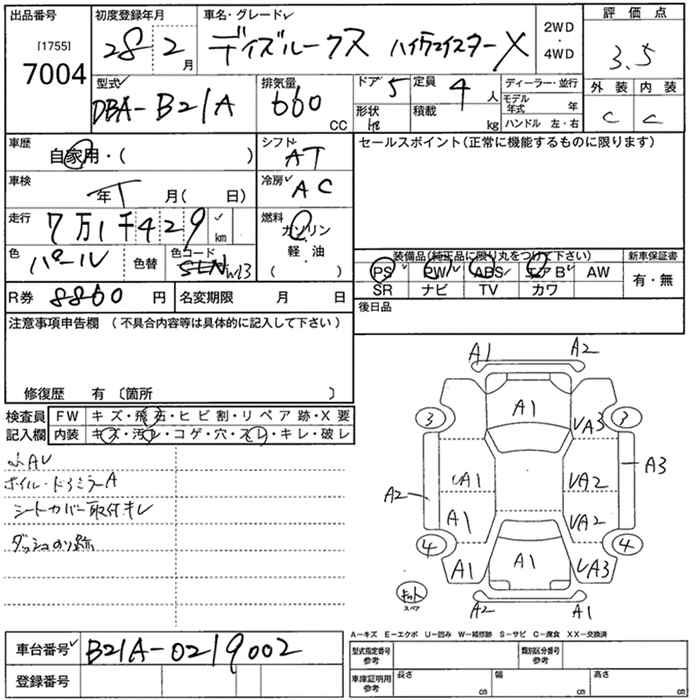 出品番号
[1755]
7004
初度登録年月
28 2 月
車名・グレード
デイズルークス ハイウェイスターX
2WD
・
4WD
評価点
3.5
外装 内装
C C
型式
DBA-B21A
排気量
660
CC
ドア 5
形状
定員 4 人
積載 kg
ディーラー・並行
モデル年式 年
ハンドル 左・右
車歴
自家用・( )
シフト
AT
セールスポイント(正常に機能するものに限ります)
車検
年 月( 日)
冷房
AC
走行
7万1千429 km
燃料
ガソリン
軽・油
( )
色
パール
色替
色コード
W13
装備品(純正品に限り丸をつけて下さい) 新車保証書
PS PW ABS エアB AW 有・無
SR ナビ TV カワ
R券 8860 円
名変期限 月 日
後日品
注意事項申告欄 (不具合内容等は具体的に記入して下さい)
修復歴 有 〔箇所 〕
検査員
記入欄
FW キズ・飛石・ヒビ割・リペア跡・X要
内装 キズ・汚レ・コゲ・穴・スレ・キレ・破レ
小AU
ホイル・ドアミラーA
シートカバー取付キレ
ダッシュのり跡
A1 A2
A1
3 3
UA3
UA1 UA2 A3
A2
A1 UA2
4 4
A1 A1 UA3
キット
スペア
A2 A1
A-キズ E-エクボ U-凹み W-補修跡 S-サビ C-腐食 XX-交換済
車台番号 B21A-0219002
登録番号
型式指定番号
参考
類別区分番号
参考
車庫証明用
参考
長さ cm
幅 cm
高さ cm